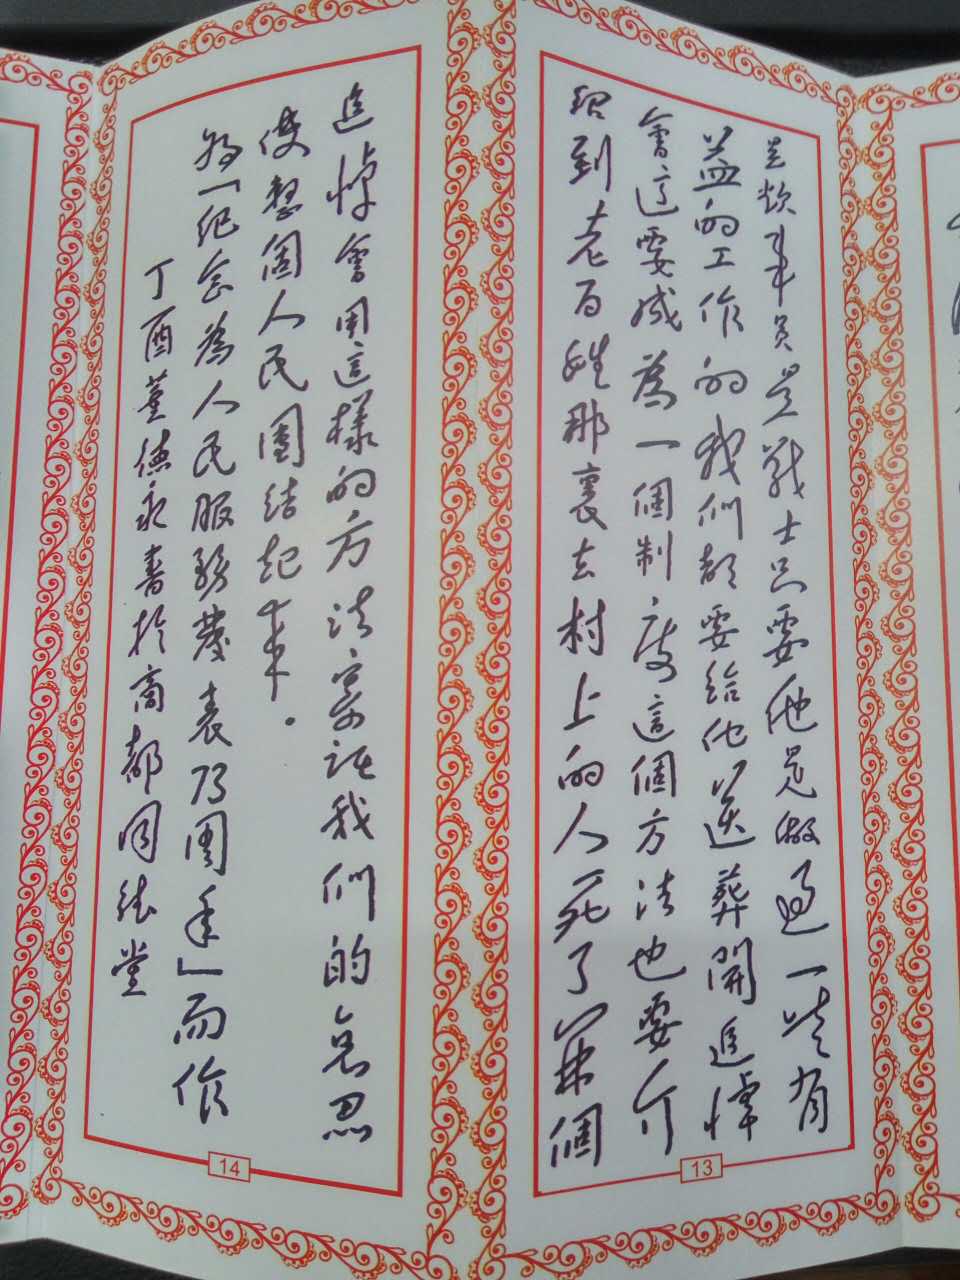 是炊事員是戰士只要他是做過一些有
益的工作的我們都要給他送葬開追悼
會這要成為一個制度這個方法也要介
紹到老百姓那裏去村上的人死了開個
13
追悼會用這樣的方法寄託我們的哀思
使整個人民團結起來。
為「纪念為人民服務發表73周年」而作
丁酉董德永書於商都同德堂
14